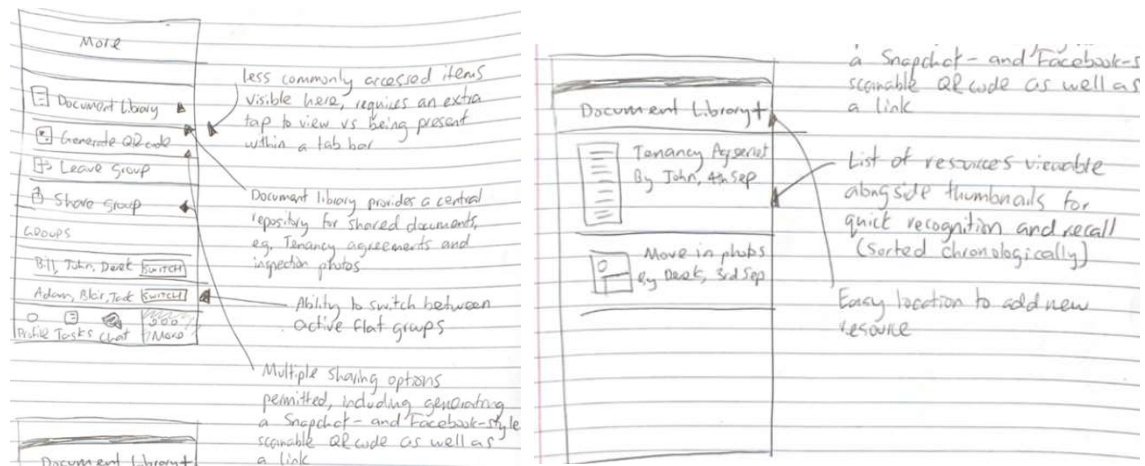 More
Document Library
Generate QR code
Leave group
Share group
GROUPS
Bill, John, Derek SWITCH
Adam, Blair, Jack SWITCH
Profile Tasks Chat More
less commonly accessed items
visible here, requires an extra
tap to view vs being present
within a tab bar
Document library provides a central
repository for shared documents,
eg. Tenancy agreements and
inspection photos
Ability to switch between
active flat groups
Multiple sharing options
permitted, including generating
a Snapchat- and Facebook-style
scannable QR code as well as
a link
Document Library+
a Snapchat- and Facebook-s
scannable QR code as well as
a link
Document Library+
Tenancy
By John, 4th Sep
Move in photos
By Derek, 3rd Sep
List of resources viewable
alongside thumbnails for
quick recognition and recall
(Sorted chronologically)
Easy location to add new
resource